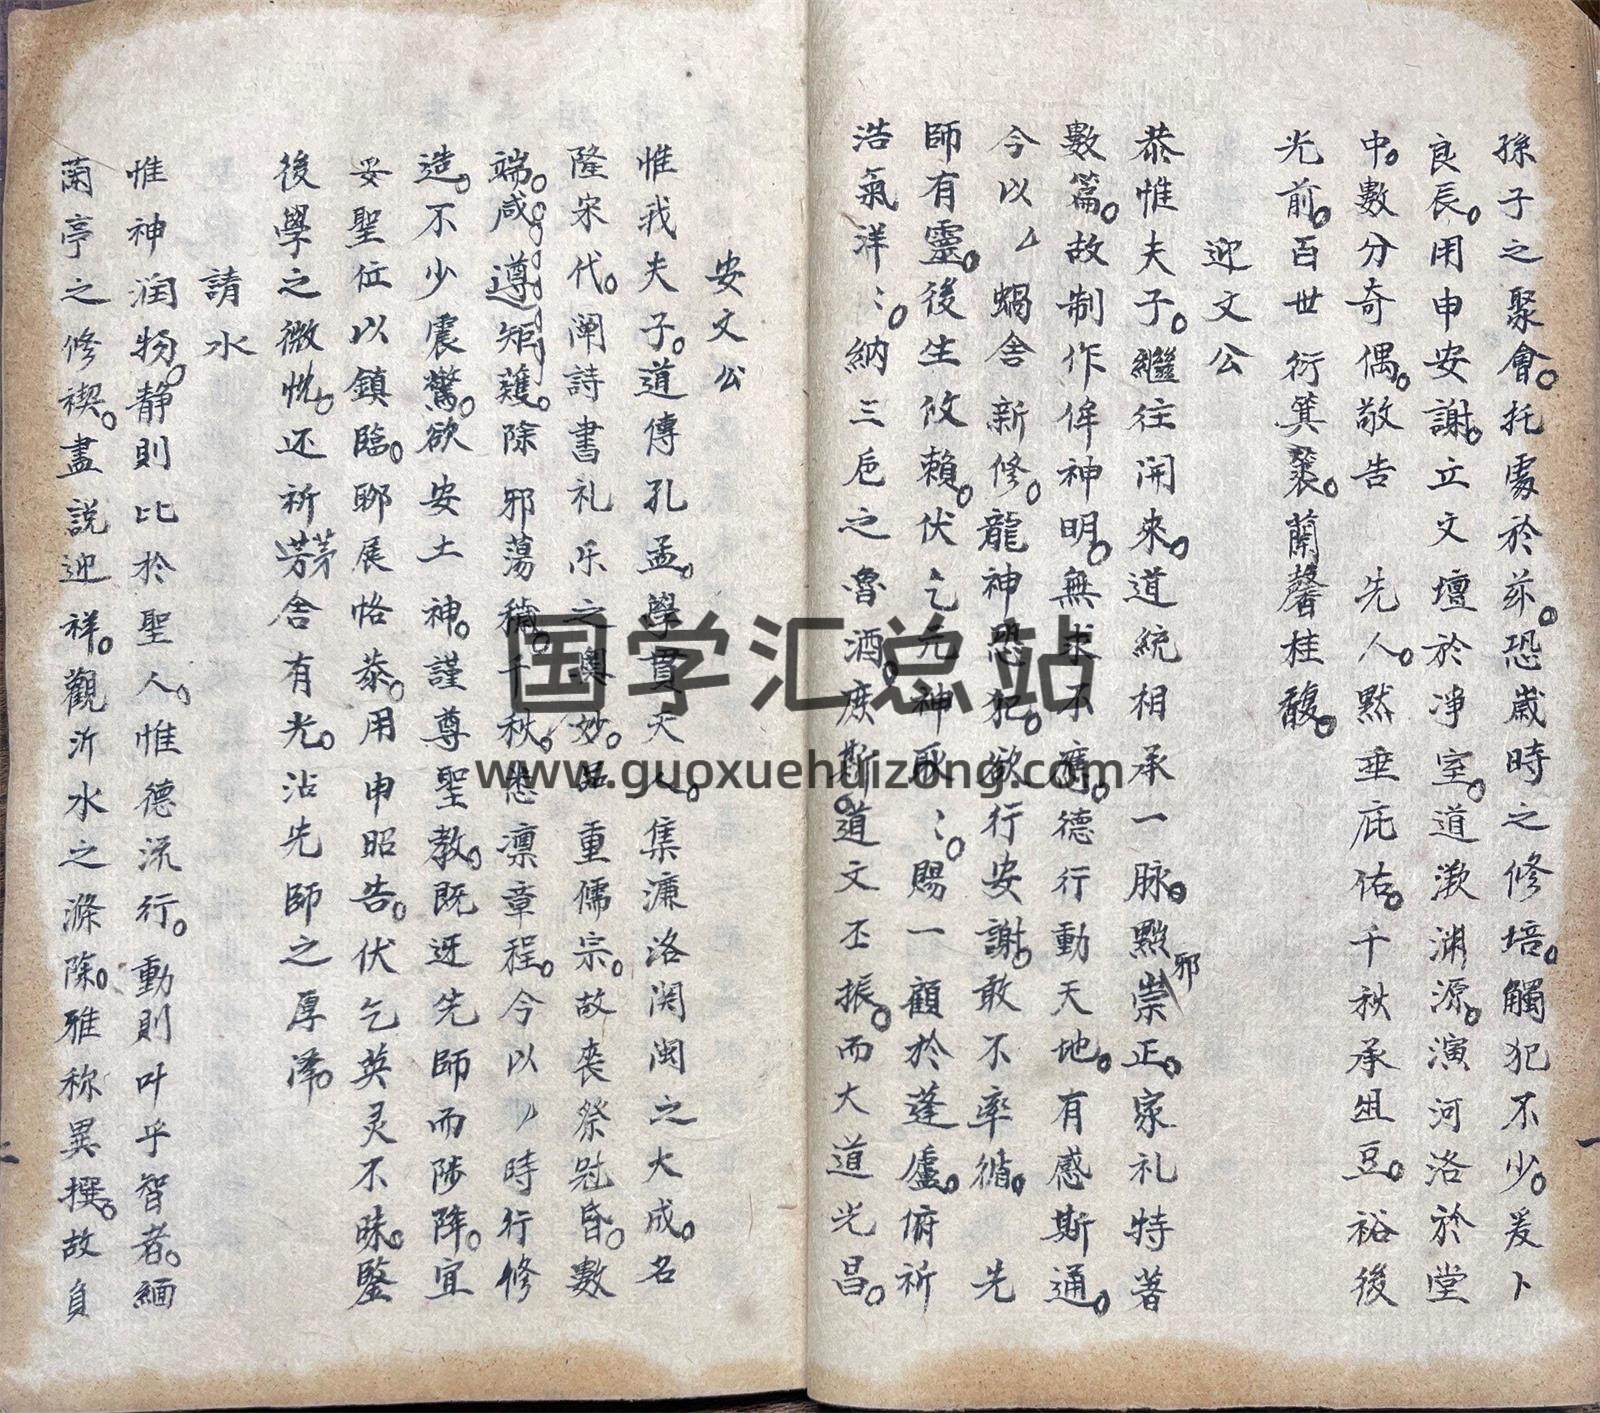 孫子之聚會。托處於茲。恐歲時之修培。觸犯不少。爰卜
良辰。用申安謝。立文壇於淨室。道漱渊源。演河洛於堂
中。數分奇偶。敬告 先人。黙垂庇佑。千秋承俎豆。裕後
光前。百世衍箕裘。蘭馨桂馥。
迎文公
恭惟夫子。繼往開來。道統相承一脉。點邪崇正。家礼特著
數篇。故制作侔神明。無求不應。德行動天地。有感斯通。
今以厶蝸舍新修。龍神恐犯。欲行安謝。敢不率循。 先
師有靈。後生攸賴。伏乞元神耿〻。賜一顧於蓬廬。俯祈
浩氣洋〻。納三卮之魯酒。庶斯道文丕振。而大道光昌。
安文公
惟我夫子。道傳孔孟。學貫天人。集濂洛関閩之大成。名
隆宋代。闡詩書礼乐之奥妙。品重儒宗。故喪祭冠昏。數
端。咸遵矩矱。除邪蕩穢。千秋。悉凛章程。今以〃時行修
造。不少震驚。欲安土神。謹尊聖教。既迓先師而陟降。宜
妥聖位以鎮臨。聊展恪恭。用申昭告。伏乞英灵不昧。鑒
後學之微忱。还祈茅舍有光。沾先師之厚澤。
請水
惟神润物。静則比於聖人。惟德流行。動則叶乎智者。緬
蘭亭之修禊。盡説迎祥。觀沂水之滌除。雅称異撰。故自
国学汇总站
www.guoxuehuizong.com